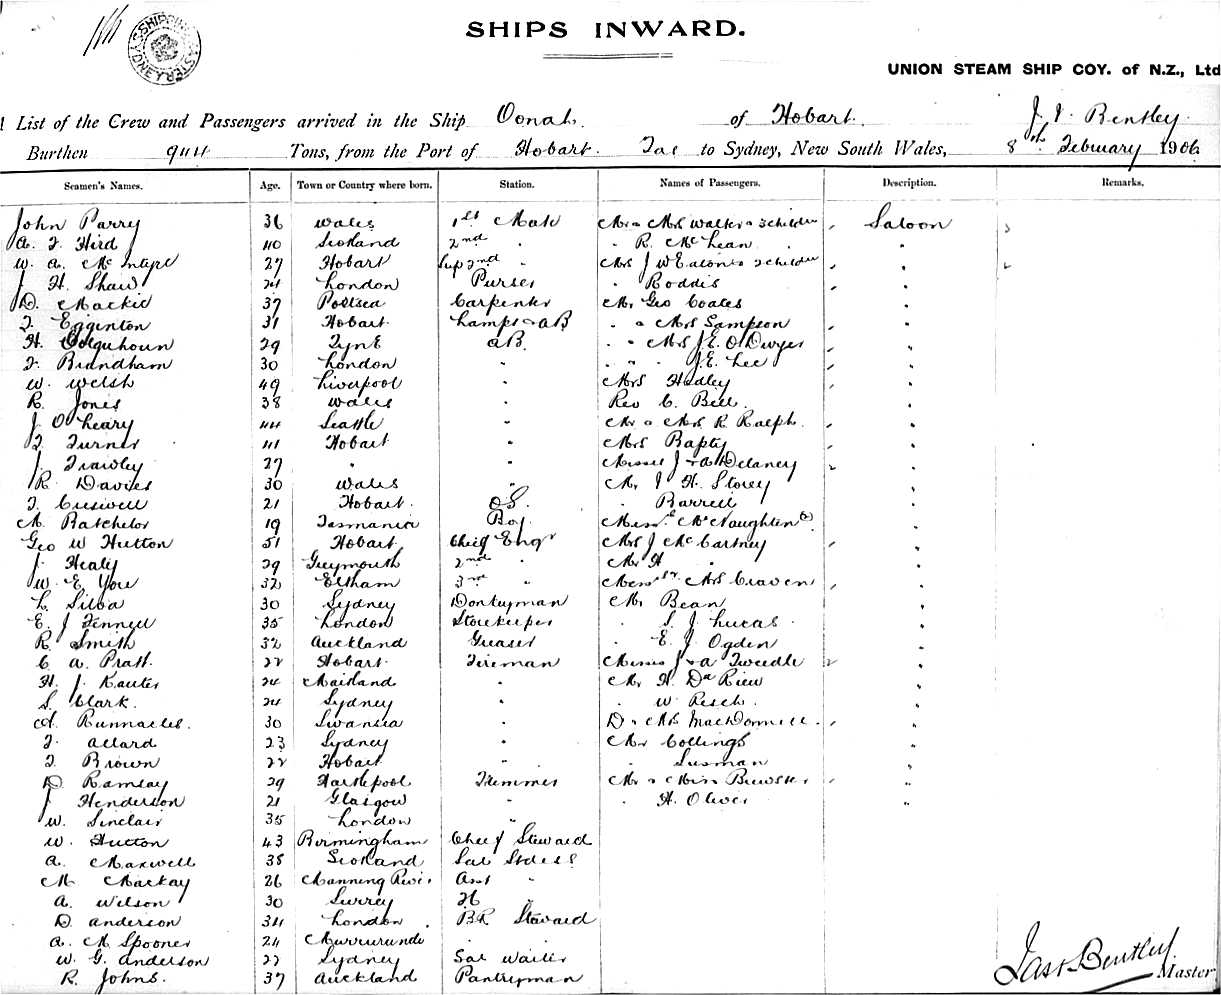 SHIPS INWARD.
UNION STEAM SHIP COY. of N.Z., Ltd
List of the Crew and Passengers arrived in the Ship Oonah of Hobart. J. I. Bentley
Burthen Tons, from the Port of Hobart. Tas to Sydney, New South Wales, 8th February 1906
Seamen's Names. Age. Town or Country where born. Station. Names of Passengers. Description. Remarks.
John Parry 36 Wales 1st Mate Mr & Mrs Walker & 3 children Saloon 3
A. F Hird 40 Scotland 2nd " " R. McLean "
W. A. McIntyre 27 Hobart Sup 2nd " Mrs J W Eaton & 2 children " 2
J H. Shaw 24 London Purser " Roddis "
D. Mackie 37 Portsea Carpenter Mr Geo Coates "
F. Egginton 31 Hobart Lamps & AB " & Mrs Sampson "
H. Colquhoun 29 Tyne AB. " " Mrs J. E. O'Dwyer "
F. Brandham 30 London " " " " J. E. Lee "
W. Welsh 49 Liverpool " Mrs Hedley "
R. Jones 38 Wales " Rev C. Bell "
J O'Leary 44 Seattle " Mr & Mrs R. Ralph "
F. Turner 41 Hobart " Mrs Bapty "
J. Frawley 27 " " Misses J & A Delaney 2 "
R. Davies 30 Wales " Mr J H. Storey "
F. Creswell 21 Hobart OS. " Barrett "
M. Batchelor 19 Tasmania Boy. McNaughton "
Geo W Hutton 51 Hobart Chief Engr Mrs J McCartney "
J. Healy 29 Greymouth 2nd " Mr H " "
W. E. You 32 Eltham 3rd " Mrs Craven "
L. Silva 30 Sydney Donkeyman Mr Bean "
E. J Fennell 35 London Storekeeper " S. J. Lucas "
R. Smith 32 Auckland Greaser " E. J. Ogden "
C A. Pratt. 22 Hobart Fireman Misses J & A Tweedle 2 "
H. J. Kauter 24 Maitland " Mr H. Da Rieu "
S. Clark. 24 Sydney " " W. Resch. "
A. Runnacles. 30 Swansea " Dr & Mrs MacDonnell "
F. Allard 23 Sydney " Mr Collings "
F. Brown 22 Hobart " " Susman "
D Ramsay 29 Hartlepool Trimmer Mr & Miss Brewster "
J. Henderson 21 Glasgow " " H. Oliver "
W. Sinclair 35 London "
W. Hutton 43 Birmingham Chief Steward
A. Maxwell 38 Scotland Sal Stdess
M Mackay 26 Manning River Asst "
A. Wilson 30 Surrey "
D. Anderson 34 London BR Steward
A. M. Spooner 24 Murrurundi "
W. G. Anderson 22 Sydney Sal Waiter
R. Johns. 37 Auckland Pantryman
Jas Bentley Master